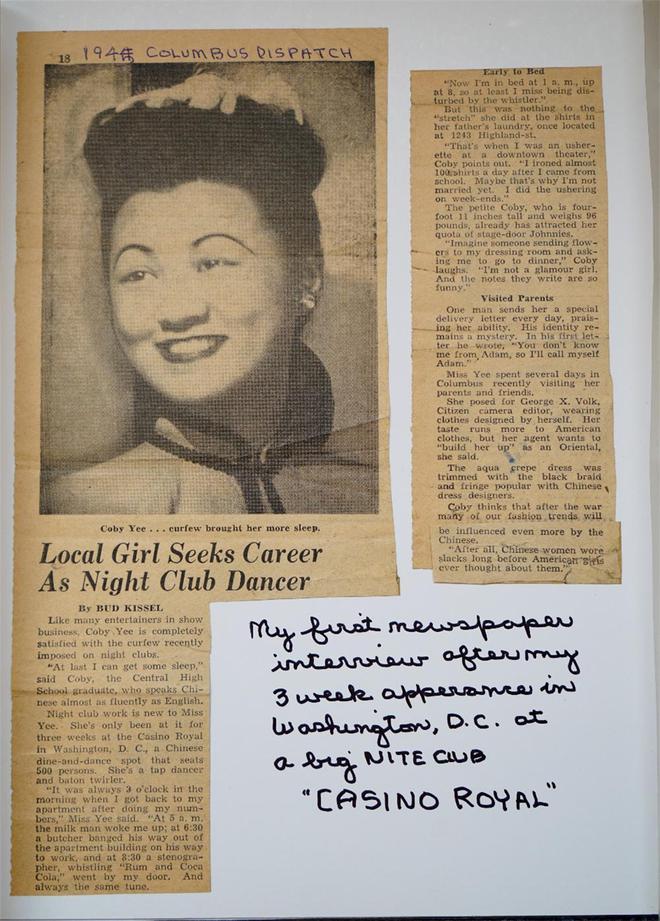 18 194 COLUMBUS DISPATCH
Coby Yee . . . curfew brought her more sleep.
Local Girl Seeks Career
As Night Club Dancer
By BUD KISSEL
Like many entertainers in show
business, Coby Yee is completely
satisfied with the curfew recently
imposed on night clubs.
"At last I can get some sleep,"
said Coby, the Central High
School graduate, who speaks Chi-
nese almost as fluently as English.
Night club work is new to Miss
Yee. She's only been at it for
three weeks at the Casino Royal
in Washington, D. C., a Chinese
dine-and-dance spot that seats
500 persons. She's a tap dancer
and baton twirler.
"It was always 3 o'clock in the
morning when I got back to my
apartment after doing my num-
bers," Miss Yee said. "At 5 a. m.
the milk man woke me up; at 6:30
a butcher banged his way out of
the apartment building on his way
to work, and at 8:30 a stenogra-
pher, whistling "Rum and Coca
Cola," went by my door. And
always the same tune.
Early to Bed
"Now I'm in bed at 1 a. m., up
at 8, so at least I miss being dis-
turbed by the whistler."
But this was nothing to the
"stretch" she did at the shirts in
her father's laundry, once located
at 1243 Highland-st.
"That's when I was an usher-
ette at a downtown theater,"
Coby points out. "I ironed almost
100 shirts a day after I came from
school. Maybe that's why I'm not
married yet. I did the ushering
on week-ends."
The petite Coby, who is four-
foot 11 inches tall and weighs 96
pounds, already has attracted her
quota of stage-door Johnnies.
"Imagine someone sending flow-
ers to my dressing room and ask-
ing me to go to dinner," Coby
laughs. "I'm not a glamour girl.
And the notes they write are so
funny."
Visited Parents
One man sends her a special
delivery letter every day, prais-
ing her ability. His identity re-
mains a mystery. In his first let-
ter he wrote, "You don't know
me from Adam, so I'll call myself
Adam."
Miss Yee spent several days in
Columbus recently visiting her
parents and friends.
She posed for George X. Volk,
Citizen camera editor, wearing
clothes designed by herself. Her
taste runs more to American
clothes, but her agent wants to
"build her up" as an Oriental,
she said.
The aqua crepe dress was
trimmed with the black braid
and fringe popular with Chinese
dress designers.
Coby thinks that after the war
many of our fashion trends will
be influenced even more by the
Chinese.
"After all, Chinese women wore
slacks long before American girls
ever thought about them."
My first newspaper
interview after my
3 week apperance in
Washington, D.C. at
a big NITE CLUB
"CASINO ROYAL"